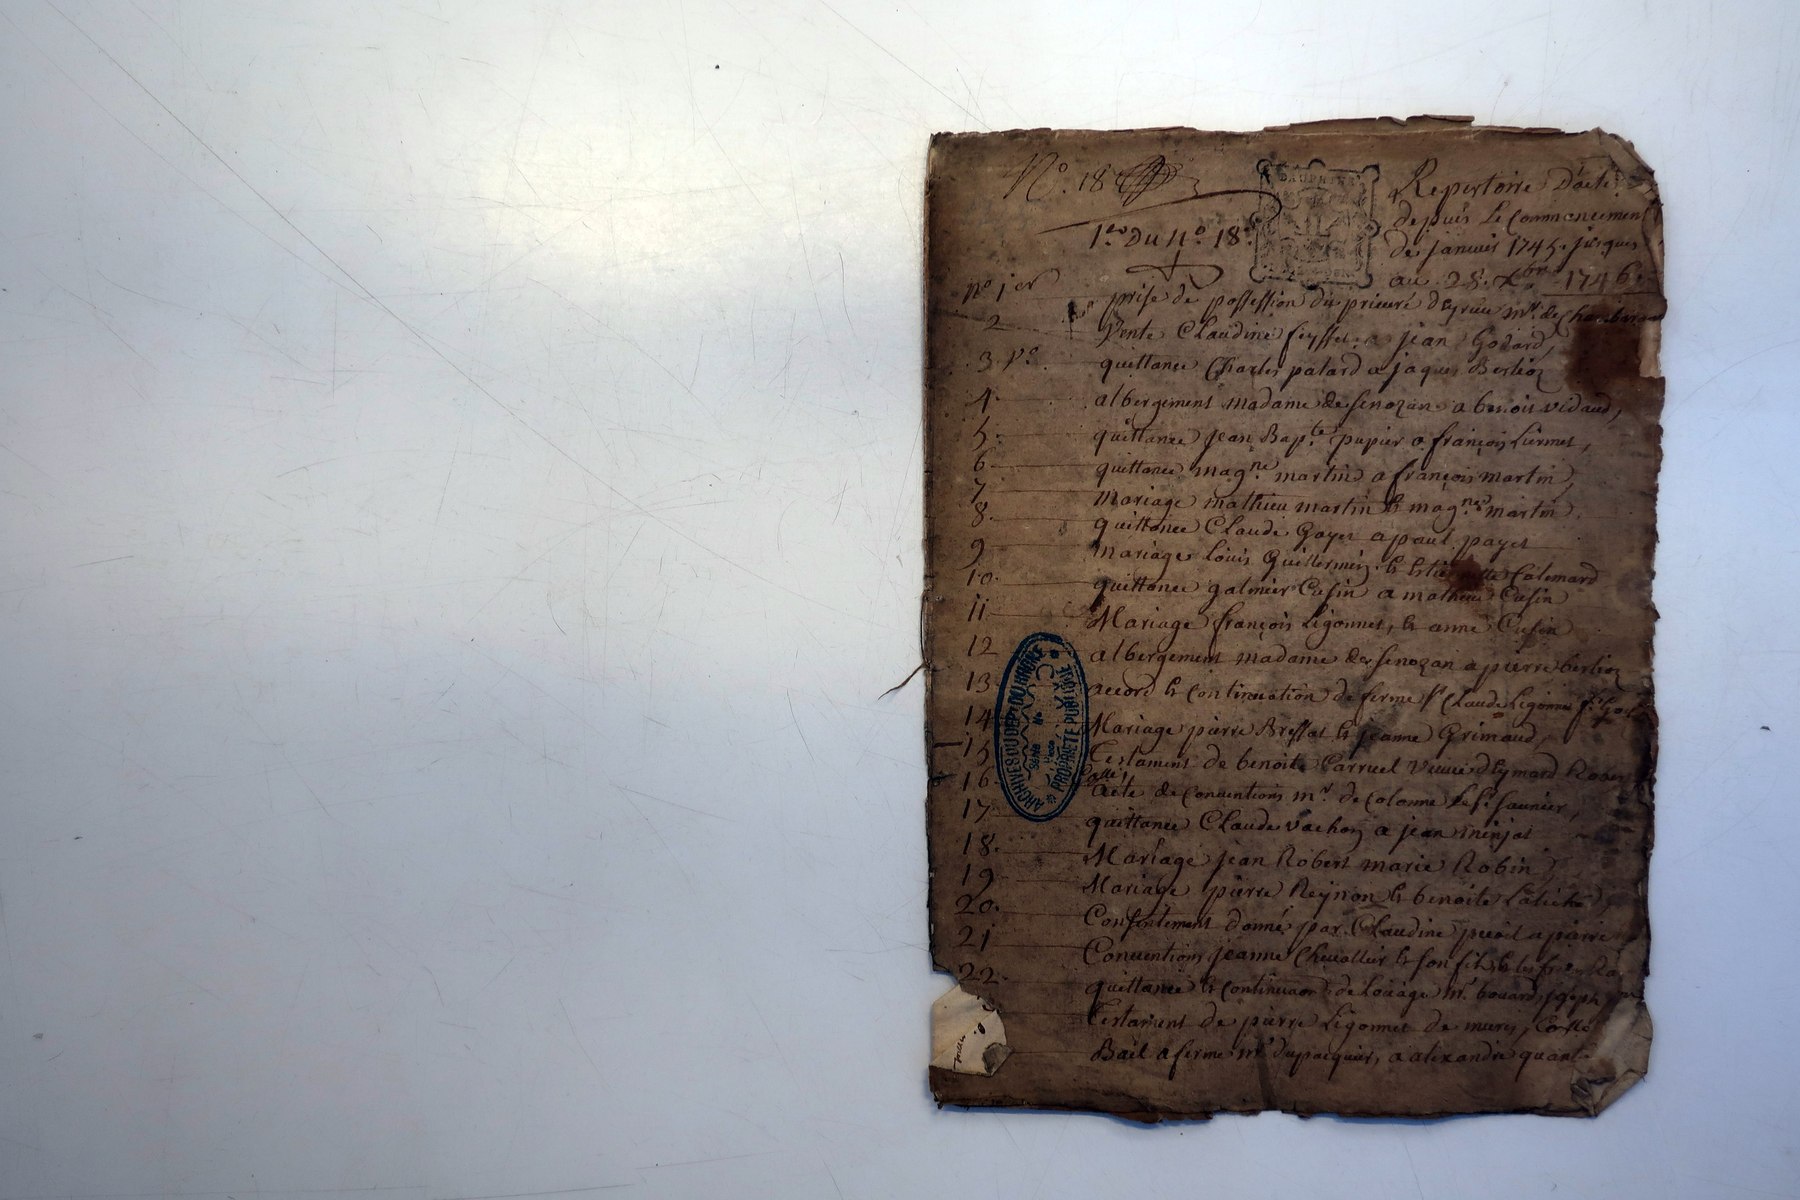 N.º 18
1.er du N.º 18.
DAUPHINÉ
Repertoire d'acte
depuis Le Commencement
de janvier 1745. jusques
au 28. Xbre 1746.
nº 1er prise de possession du prieuré mr. de
2 Vente Claudine feyssel a jean Gobard,
3. vº quittance Charles patard a jaques Berlioz
4. albergement madame de senozan a benoit vidaud,
5. quittance jean Bap.te pupier a françois Liermet,
6 quittance mag.ne martin a françois martin,
7 mariage mathieu martin & mag.ne martin
8. quittance Claude Goyet a paul payet
9 mariage Louis Guillermin & Calemard
10. quittance galmier Cusin a mathieu Cusin
11 Mariage françois Ligonnet, & anne Cusin
12 albergement madame de senozan a pierre berlioz
13 accord & continuation de ferme sr Claude Ligonnet
14 Mariage pierre Bressat & jeanne Grimaud,
15 Testament de benoite Carruel veuve d'eymard Rober
16. acte de conventions mr. de Colonne & sr. saunier,
17 quittance Claude vachon a jean minjat
18. Mariage jean Robert marie Robin
19 Mariage pierre Reynon & benoite
20. Consentement donné par Claudine a pierre
21 Conventions jeanne Chevallier & son fils & les
22. quittance & continuaon de Louage mr. bouard, joseph
Testament de pierre Ligonnet de mures,
Bail a ferme mr dupacquier, a alexandre
ARCHIVES DU DÉPT DU RHÔNE
Série
Pièce
PROPRIÉTÉ PUBLIQUE